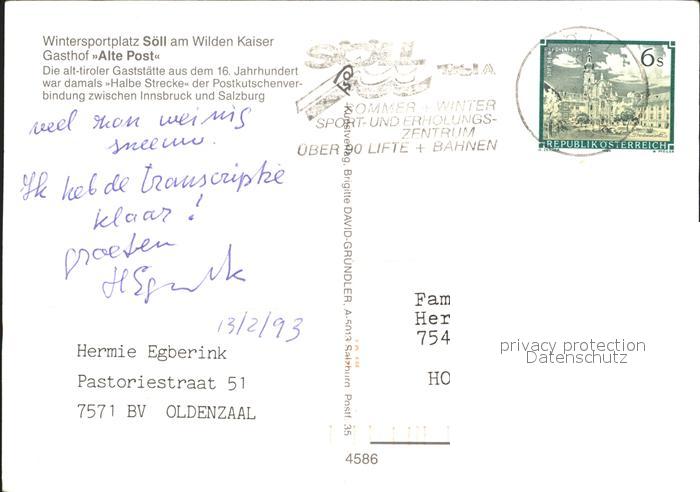 Wintersportplatz Söll am Wilden Kaiser
Gasthof »Alte Post«
Die alt-tiroler Gaststätte aus dem 16. Jahrhundert
war damals »Halbe Strecke« der Postkutschenver-
bindung zwischen Innsbruck und Salzburg
veel zon weinig
sneeuw.
Ik heb de transcriptie
klaar!
groeten
13/2/93
Hermie Egberink
Pastoriestraat 51
7571 BV OLDENZAAL
SÖLL
TIROL A.
SOMMER + WINTER
SPORT- UND ERHOLUNGS-
ZENTRUM
ÜBER 90 LIFTE + BAHNEN
Kunstverlag, Brigitte DAVID-GRÜNDLER, A-5013 Salzburg, Postf. 35
4586
6s
REPUBLIK ÖSTERREICH
Fam
Her
754
HO
privacy protection
Datenschutz